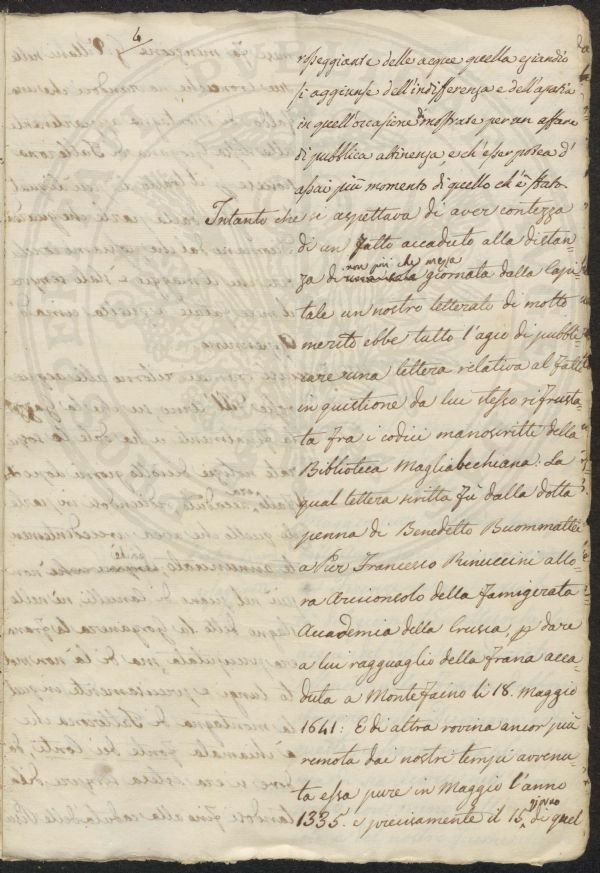 4
rosseggiante delle acque quella eziandio
si aggiunse dell'indifferenza e dell'apatia
in quell'occasione mostrate per un affare
di pubblica attinenza, e ch'esser potea d'
assai più momento di quello ch'è stato.
Intanto che si aspettava di aver contezza
di un fatto accaduto alla distan=
za di non più che mezza giornata dalla Capi=
tale un nostro letterato di molto
merito ebbe tutto l'agio di pubbli=
care una lettera relativa al fatto
in quistione da lui stesso rifrusta=
ta fra i codici manoscritti della
Biblioteca Magliabechiana: La
qual lettera scritta fù dalla dotta
penna di Benedetto Buommattei
a Pier Francesco Rinuccini allo=
ra Arciconsolo della famigerata
Accademia della Crusca, p dare
a lui ragguaglio della frana acca=
duta a Montefaino li 18. Maggio
1641: E di altra rovina ancor più
remota dai nostri tempi avvenu=
ta essa pure in Maggio l'anno
1335. e precisamente il 15, di quel